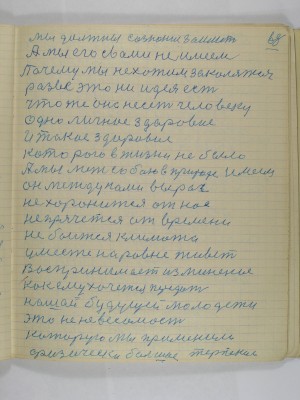 68
мы должны сознони заиметь
А мы его с вами не имеем
Почему мы не хотим закалятся
разве это ни идея есть
что же она несет человеку
одно личное здоровие
И такое здоровие
которого в жизни не было
А мы меж собою в природе имеем
он между нами вырас
не хоронится от нас
не прячется от времени
не боится климата
вместе наровне живет
Воспринимает изменение
как ему хочется
нашай будущей молодежи
это не невесомость
которую мы применели
физически терпение